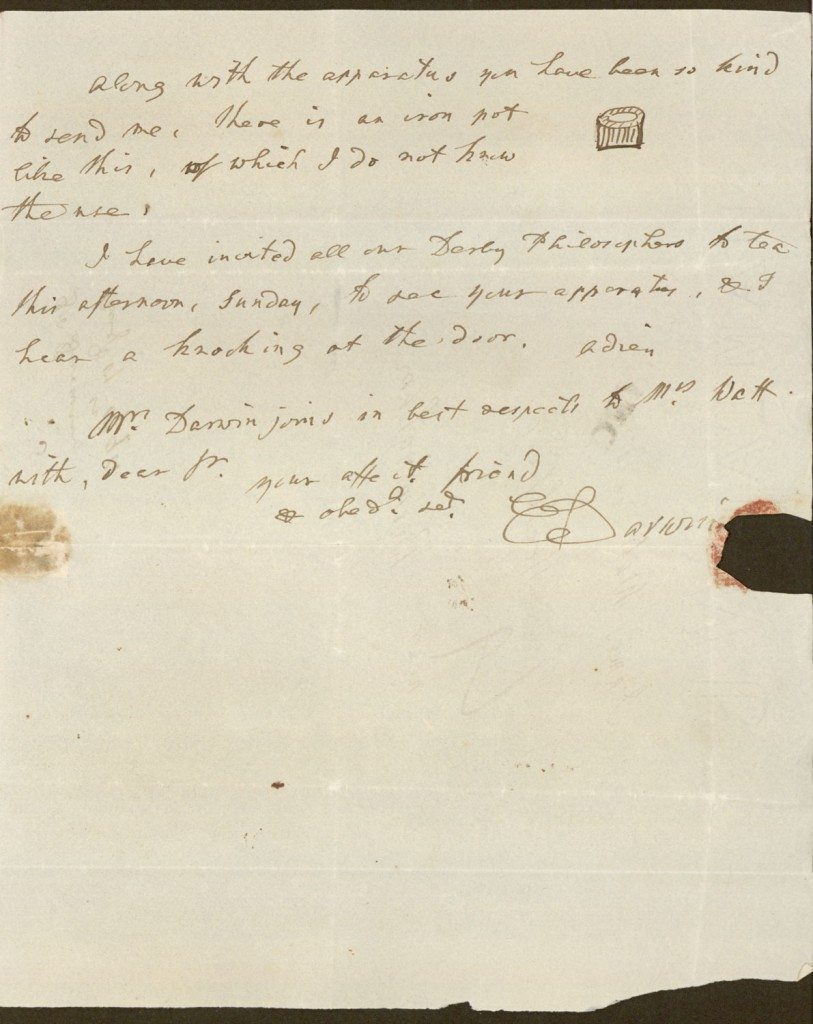 along with the apparatus you have been so kind
to send me, there is an iron pot
like this, of which I do not know
the use.
I have invited all our Derby Philosophers to tea
this afternoon, Sunday, to see your apparatus, & I
hear a knocking at the door. adieu
Mrs. Darwin joins in best respects to Mrs Watt.
with, dear Sr. your affect. friend
& obedt. set.
E Darwin